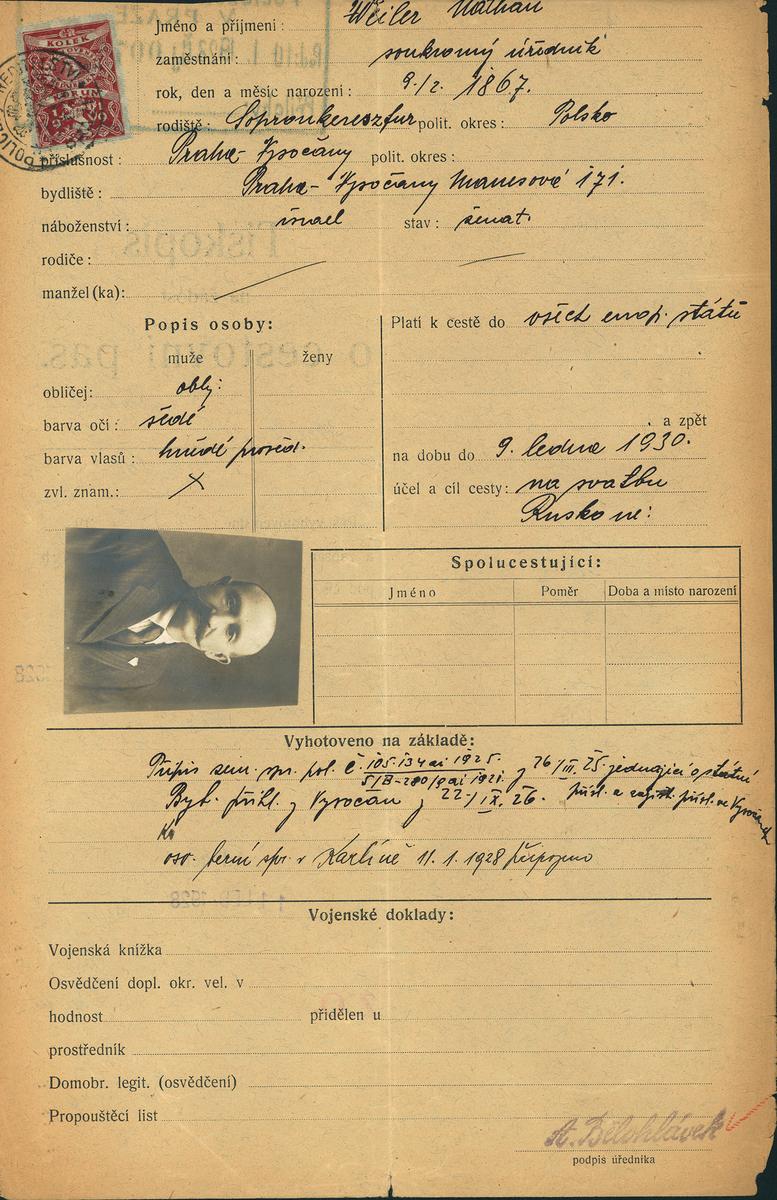 KOLEK
Jméno a příjmení : Weiler Nathan
zaměstnání : soukromý úředník
rok, den a měsíc narození : 9./2. 1867.
rodiště : Sopronkeresztur polit. okres : Polsko
příslušnost : Praha - Vysočany polit. okres :
bydliště : Praha - Vysočany Manesové 171.
náboženství : israel stav : ženat.
rodiče :
manžel (ka) :
Popis osoby:
muže ženy
obličej: oblý:
barva očí : šedé
barva vlasů : hnědé prošed.
zvl. znam. : X
Platí k cestě do všech evrop. států
a zpět
na dobu do 9. ledna 1930.
účel a cíl cesty : na svatbu
Rusko ne:
Spolucestující:
Jméno Poměr Doba a místo narození
Vyhotoveno na základě:
Přípis zem. spr. pol. č. 105.134 ai 1925. z 26/III. 25. jednající o státní
Byt. přihl. z Vysočan z 22/IX. 26.
oso. berní spr. v Karlíně 11. 1. 1928 připojeno
Vojenské doklady:
Vojenská knížka
Osvědčení dopl. okr. vel. v
hodnost přidělen u
prostředník
Domobr. legit. (osvědčení)
Propouštěcí list
A. Bělohlávek
podpis úředníka